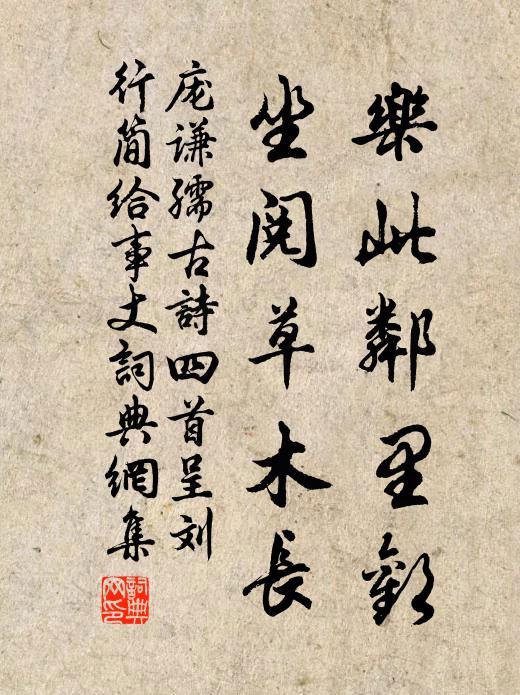 樂此鄰里歡
坐閱草木長
庞謙孺古詩四首呈刘
行简给事丈詞典網集
詞典網印